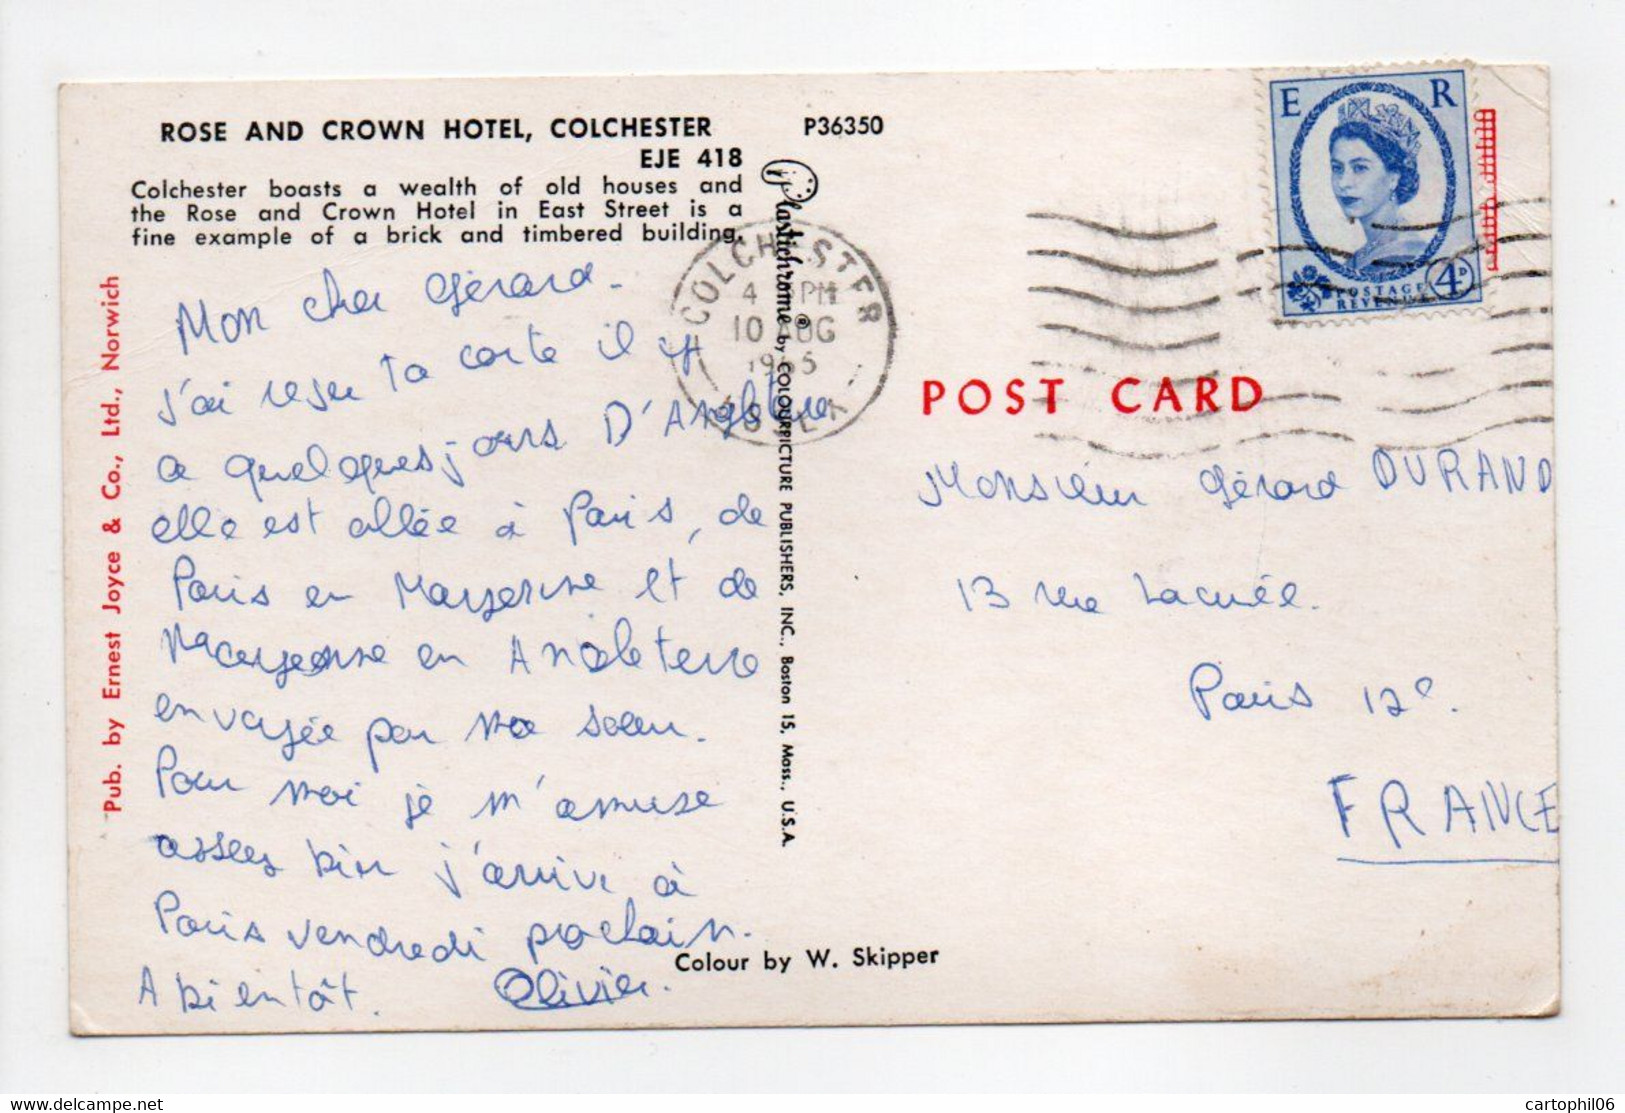 ROSE AND CROWN HOTEL, COLCHESTER
EJE 418
Colchester boasts a wealth of old houses and
the Rose and Crown Hotel in East Street is a
fine example of a brick and timbered building.
P36350
Plastichrome® by COLOURPICTURE PUBLISHERS, INC., Boston 15, Mass., U.S.A.
Pub. by Ernest Joyce & Co., Ltd., Norwich
Mon cher Gérard.
j'ai reçu ta carte il y
a quelques jours D'Angleterre
elle est allée à Paris, de
Paris en Mayenne et de
Mayenne en Angleterre
envoyée par ma soeur.
Pour moi je m'amuse
assez bien j'arrive à
Paris vendredi prochain.
A bientôt. Olivier.
Colour by W. Skipper
COLCHESTER
4 PM
10 AUG
ESSEX
E R
POSTAGE
REVENUE
4D
POST CARD
Monsieur Gérard DURAND
13 rue Lacuée.
Paris 12e.
FRANCE
cartophil06